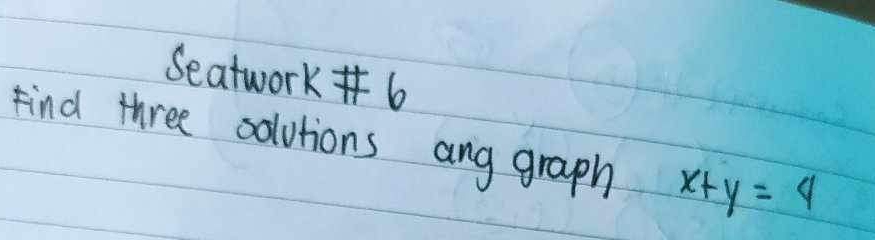 Seatwork # 6
Find three solutions ang graph x+y = 4